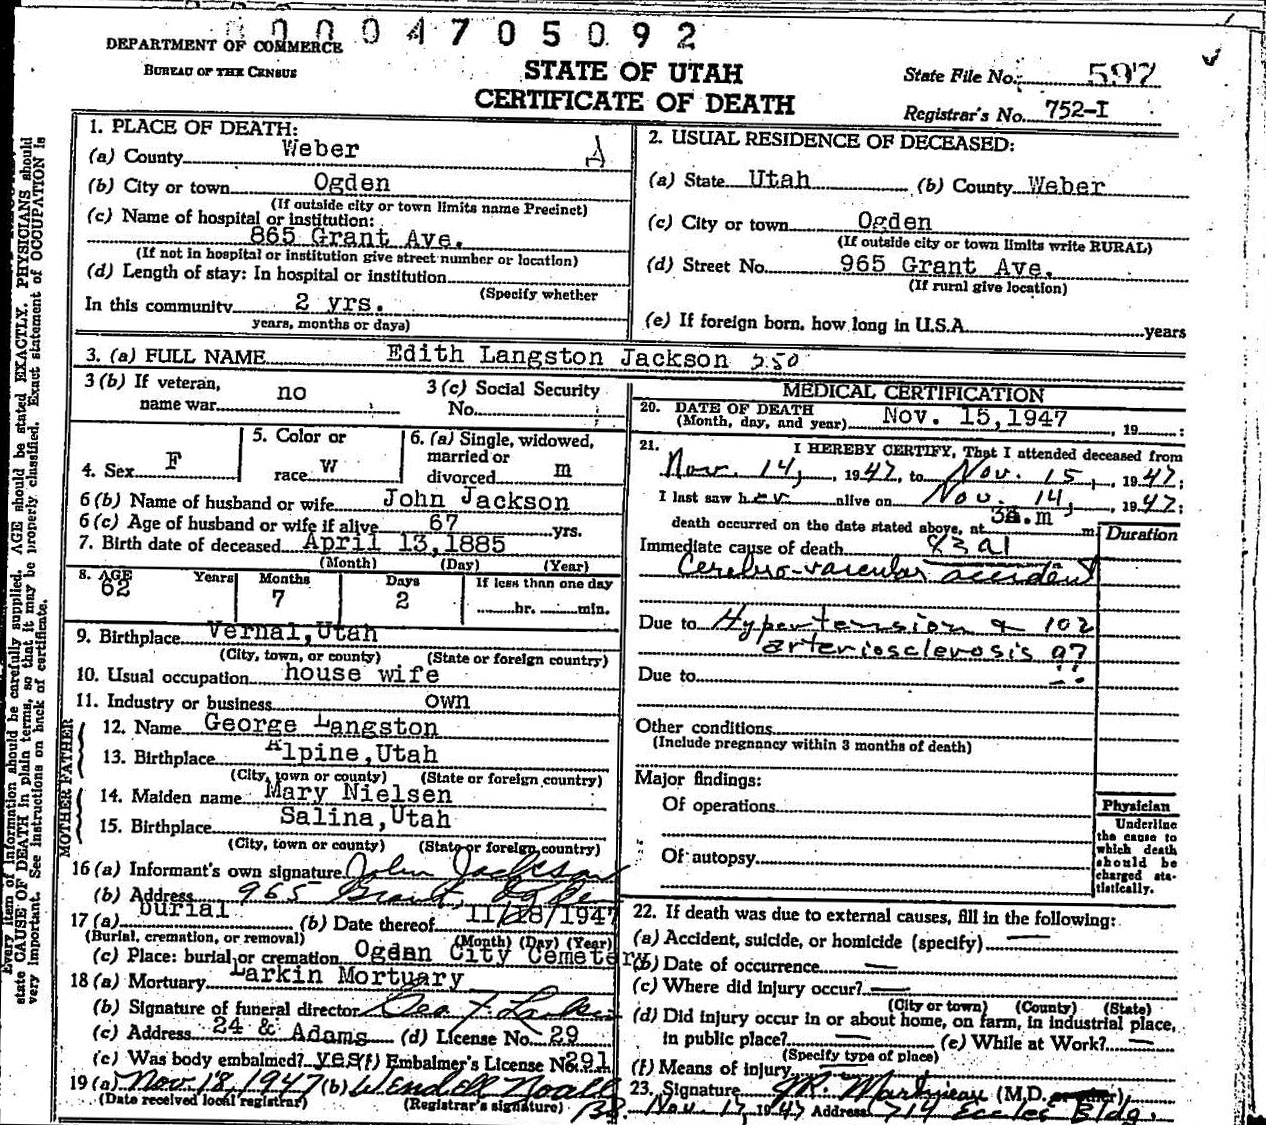 0004705092
DEPARTMENT OF COMMERCE
BUREAU OF THE CENSUS
STATE OF UTAH
CERTIFICATE OF DEATH
State File No. 597
Registrar's No. 752-I
Every item of information should be carefully supplied. AGE should be stated EXACTLY. PHYSICIANS should
state CAUSE OF DEATH in plain terms, so that it may be properly classified. Exact statement of OCCUPATION is
very important. See instructions on back of certificate.
1. PLACE OF DEATH:
(a) County Weber
(b) City or town Ogden
(If outside city or town limits name Precinct)
(c) Name of hospital or institution:
865 Grant Ave.
(If not in hospital or institution give street number or location)
(d) Length of stay: In hospital or institution
(Specify whether
In this community 2 yrs.
years, months or days)
2. USUAL RESIDENCE OF DECEASED:
(a) State Utah (b) County Weber
(c) City or town Ogden
(If outside city or town limits write RURAL)
(d) Street No. 965 Grant Ave.
(If rural give location)
(e) If foreign born, how long in U.S.A. years
3. (a) FULL NAME Edith Langston Jackson 550
3 (b) If veteran, name war no
3 (c) Social Security No.
4. Sex F
5. Color or race W
6. (a) Single, widowed, married or divorced m
6 (b) Name of husband or wife John Jackson
6 (c) Age of husband or wife if alive 67 yrs.
7. Birth date of deceased April 13,1885
(Month) (Day) (Year)
8. AGE Years Months Days If less than one day
62 7 2 hr. min.
9. Birthplace Vernal,Utah
(City, town, or county) (State or foreign country)
10. Usual occupation house wife
11. Industry or business own
FATHER
12. Name George Langston
13. Birthplace Alpine,Utah
(City, town or county) (State or foreign country)
MOTHER
14. Maiden name Mary Nielsen
15. Birthplace Salina,Utah
(City, town or county) (State or foreign country)
16 (a) Informant's own signature John Jackson
(b) Address 965 Grant, Ogden
17 (a) burial (b) Date thereof 11/18/1947
(Burial, cremation, or removal) (Month) (Day) (Year)
(c) Place: burial or cremation Ogden City Cemetery
18 (a) Mortuary Larkin Mortuary
(b) Signature of funeral director Geo F. Larkin
(c) Address 24 & Adams (d) License No. 29
(e) Was body embalmed? yes (f) Embalmer's License No. 291
19 (a) Nov 18, 1947 (b) Wendell Noall
(Date received local registrar) (Registrar's signature)
MEDICAL CERTIFICATION
20. DATE OF DEATH
(Month, day, and year) Nov. 15,1947, 19 :
21. I HEREBY CERTIFY, That I attended deceased from
Nov. 14, , 1947, to Nov. 15, , 1947;
I last saw her alive on Nov. 14, , 1947;
death occurred on the date stated above, at 3a.m m.
Duration
Immediate cause of death 83a1
Cerebro-vascular accident
Due to Hypertension & 102
arteriosclerosis 97
Due to
Other conditions
(Include pregnancy within 3 months of death)
Major findings:
Of operations
Of autopsy
Physician
Underline
the cause to
which death
should be
charged sta-
tistically.
22. If death was due to external causes, fill in the following:
(a) Accident, suicide, or homicide (specify) —
(b) Date of occurrence —
(c) Where did injury occur? —
(City or town) (County) (State)
(d) Did injury occur in or about home, on farm, in industrial place,
in public place? — (e) While at Work? —
(Specify type of place)
(f) Means of injury
23. Signature J.R. Martineau (M.D. or other),
Nov. 17, 1947 Address 714 Eccles Bldg.